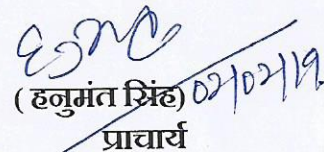 ( हनुमंत सिंह) 02/02/19.
प्राचार्य